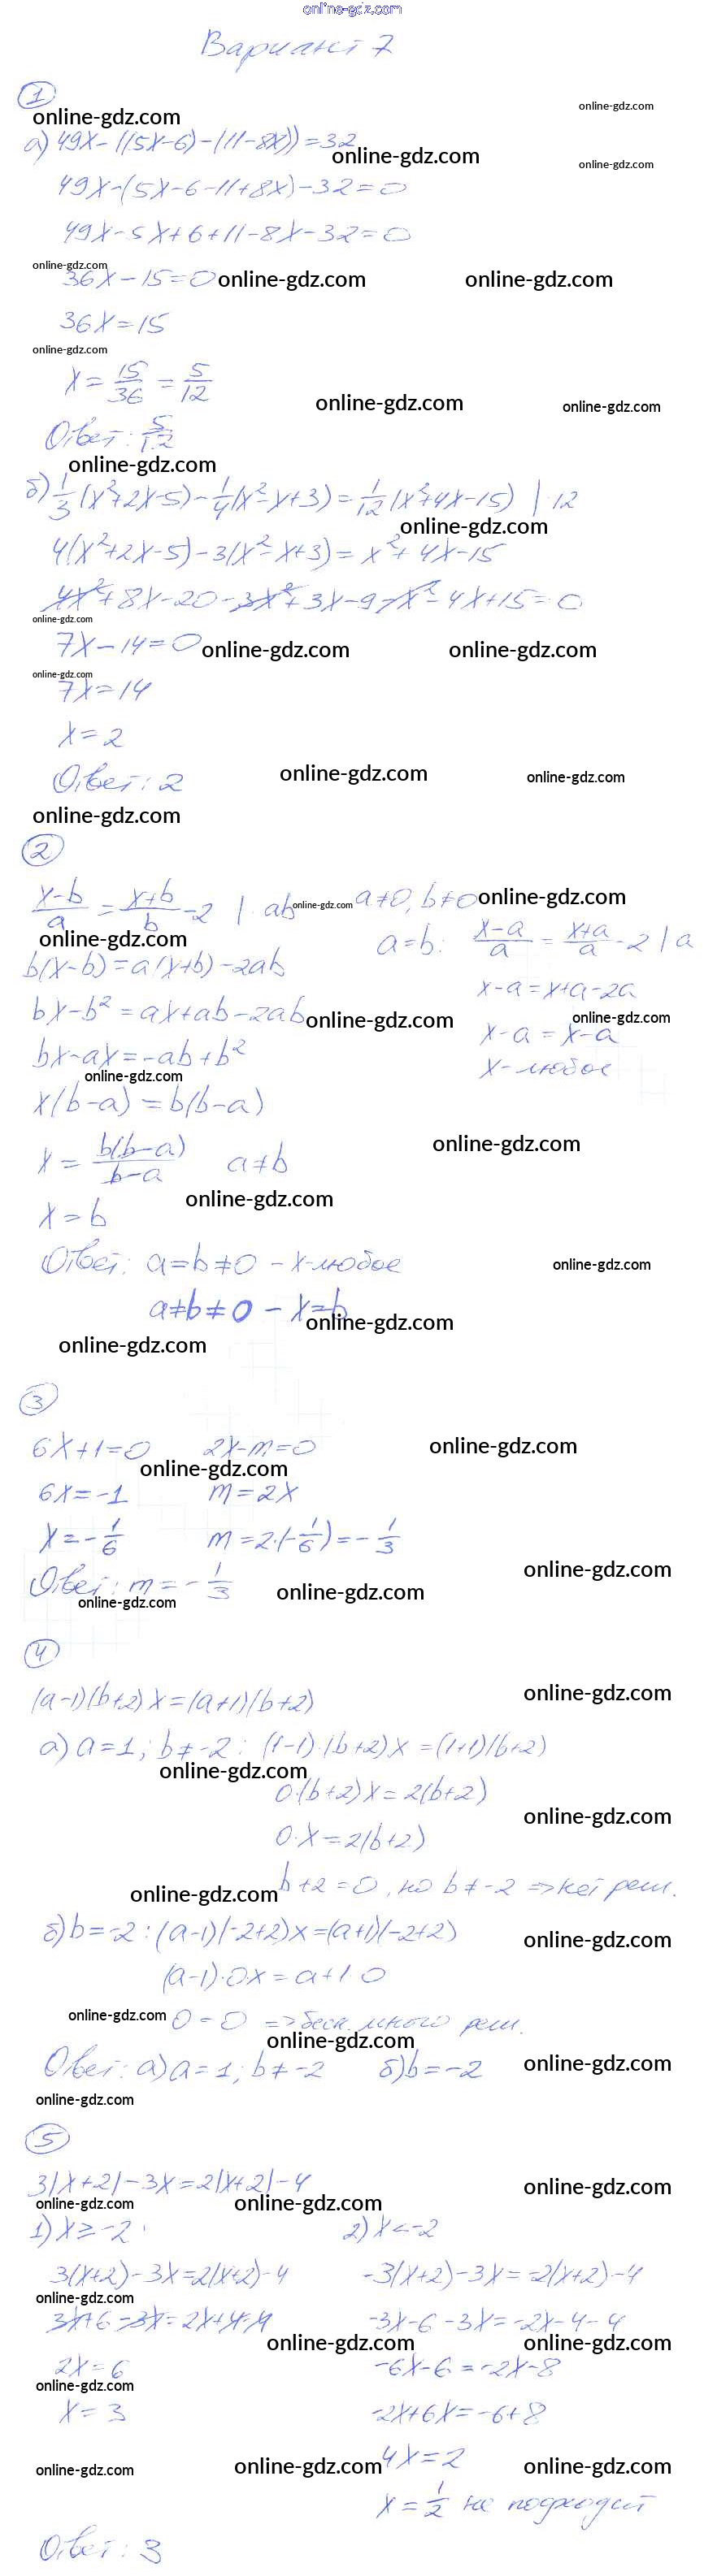 online-gdz.com
Вариант 7
1
online-gdz.com online-gdz.com
а) 49x-((5x-6)-(11-8x))=32
online-gdz.com online-gdz.com
49x-(5x-6-11+8x)-32=0
49x-5x+6+11-8x-32=0
online-gdz.com
36x-15=0 online-gdz.com online-gdz.com
36x=15
online-gdz.com
x=15/36=5/12
online-gdz.com online-gdz.com
Ответ: 5/12
online-gdz.com
б) 1/3(x²+2x-5)-1/4(x²-x+3)=1/12(x²+4x-15) |·12
online-gdz.com
4(x²+2x-5)-3(x²-x+3)=x²+4x-15
4x²+8x-20-3x²+3x-9-x²-4x+15=0
online-gdz.com
7x-14=0 online-gdz.com online-gdz.com
online-gdz.com
7x=14
x=2
Ответ: 2 online-gdz.com online-gdz.com
online-gdz.com
2
(x-b)/a=(x+b)/b-2 |·ab online-gdz.com a≠0, b≠0 online-gdz.com
online-gdz.com a=b: (x-a)/a=(x+a)/a-2 |·a
b(x-b)=a(x+b)-2ab
x-a=x+a-2a
bx-b²=ax+ab-2ab online-gdz.com online-gdz.com
x-a=x-a
bx-ax=-ab+b²
x-любое
online-gdz.com
x(b-a)=b(b-a)
online-gdz.com
x=b(b-a)/(b-a) a≠b
online-gdz.com
x=b
Ответ: a=b≠0 - x-любое online-gdz.com
a≠b≠0 - x=b
online-gdz.com
online-gdz.com
3
6x+1=0 2x-m=0 online-gdz.com
online-gdz.com
6x=-1 m=2x
x=-1/6 m=2·(-1/6)=-1/3
online-gdz.com
Ответ: m=-1/3 online-gdz.com
online-gdz.com
4
(a-1)(b+2)x=(a+1)(b+2) online-gdz.com
а) a=1; b≠-2: (1-1)·(b+2)x=(1+1)(b+2)
online-gdz.com
0·(b+2)x=2(b+2)
online-gdz.com
0·x=2(b+2)
online-gdz.com b+2=0, но b≠-2 => нет реш.
б) b=-2: (a-1)(-2+2)x=(a+1)(-2+2)
online-gdz.com
(a-1)·0x=a+1·0
online-gdz.com 0=0 => беск. много реш.
online-gdz.com
Ответ: а) a=1; b≠-2 б) b=-2 online-gdz.com
online-gdz.com
5
3|x+2|-3x=2|x+2|-4 online-gdz.com
online-gdz.com online-gdz.com
1) x≥-2 2) x<-2
3(x+2)-3x=2(x+2)-4 -3(x+2)-3x=-2(x+2)-4
online-gdz.com
3x+6-3x=2x+4-4 -3x-6-3x=-2x-4-4
online-gdz.com online-gdz.com
2x=6 -6x-6=-2x-8
online-gdz.com
x=3 -2x+6x=-6+8
online-gdz.com online-gdz.com 4x=2 online-gdz.com
x=1/2 не подходит
Ответ: 3